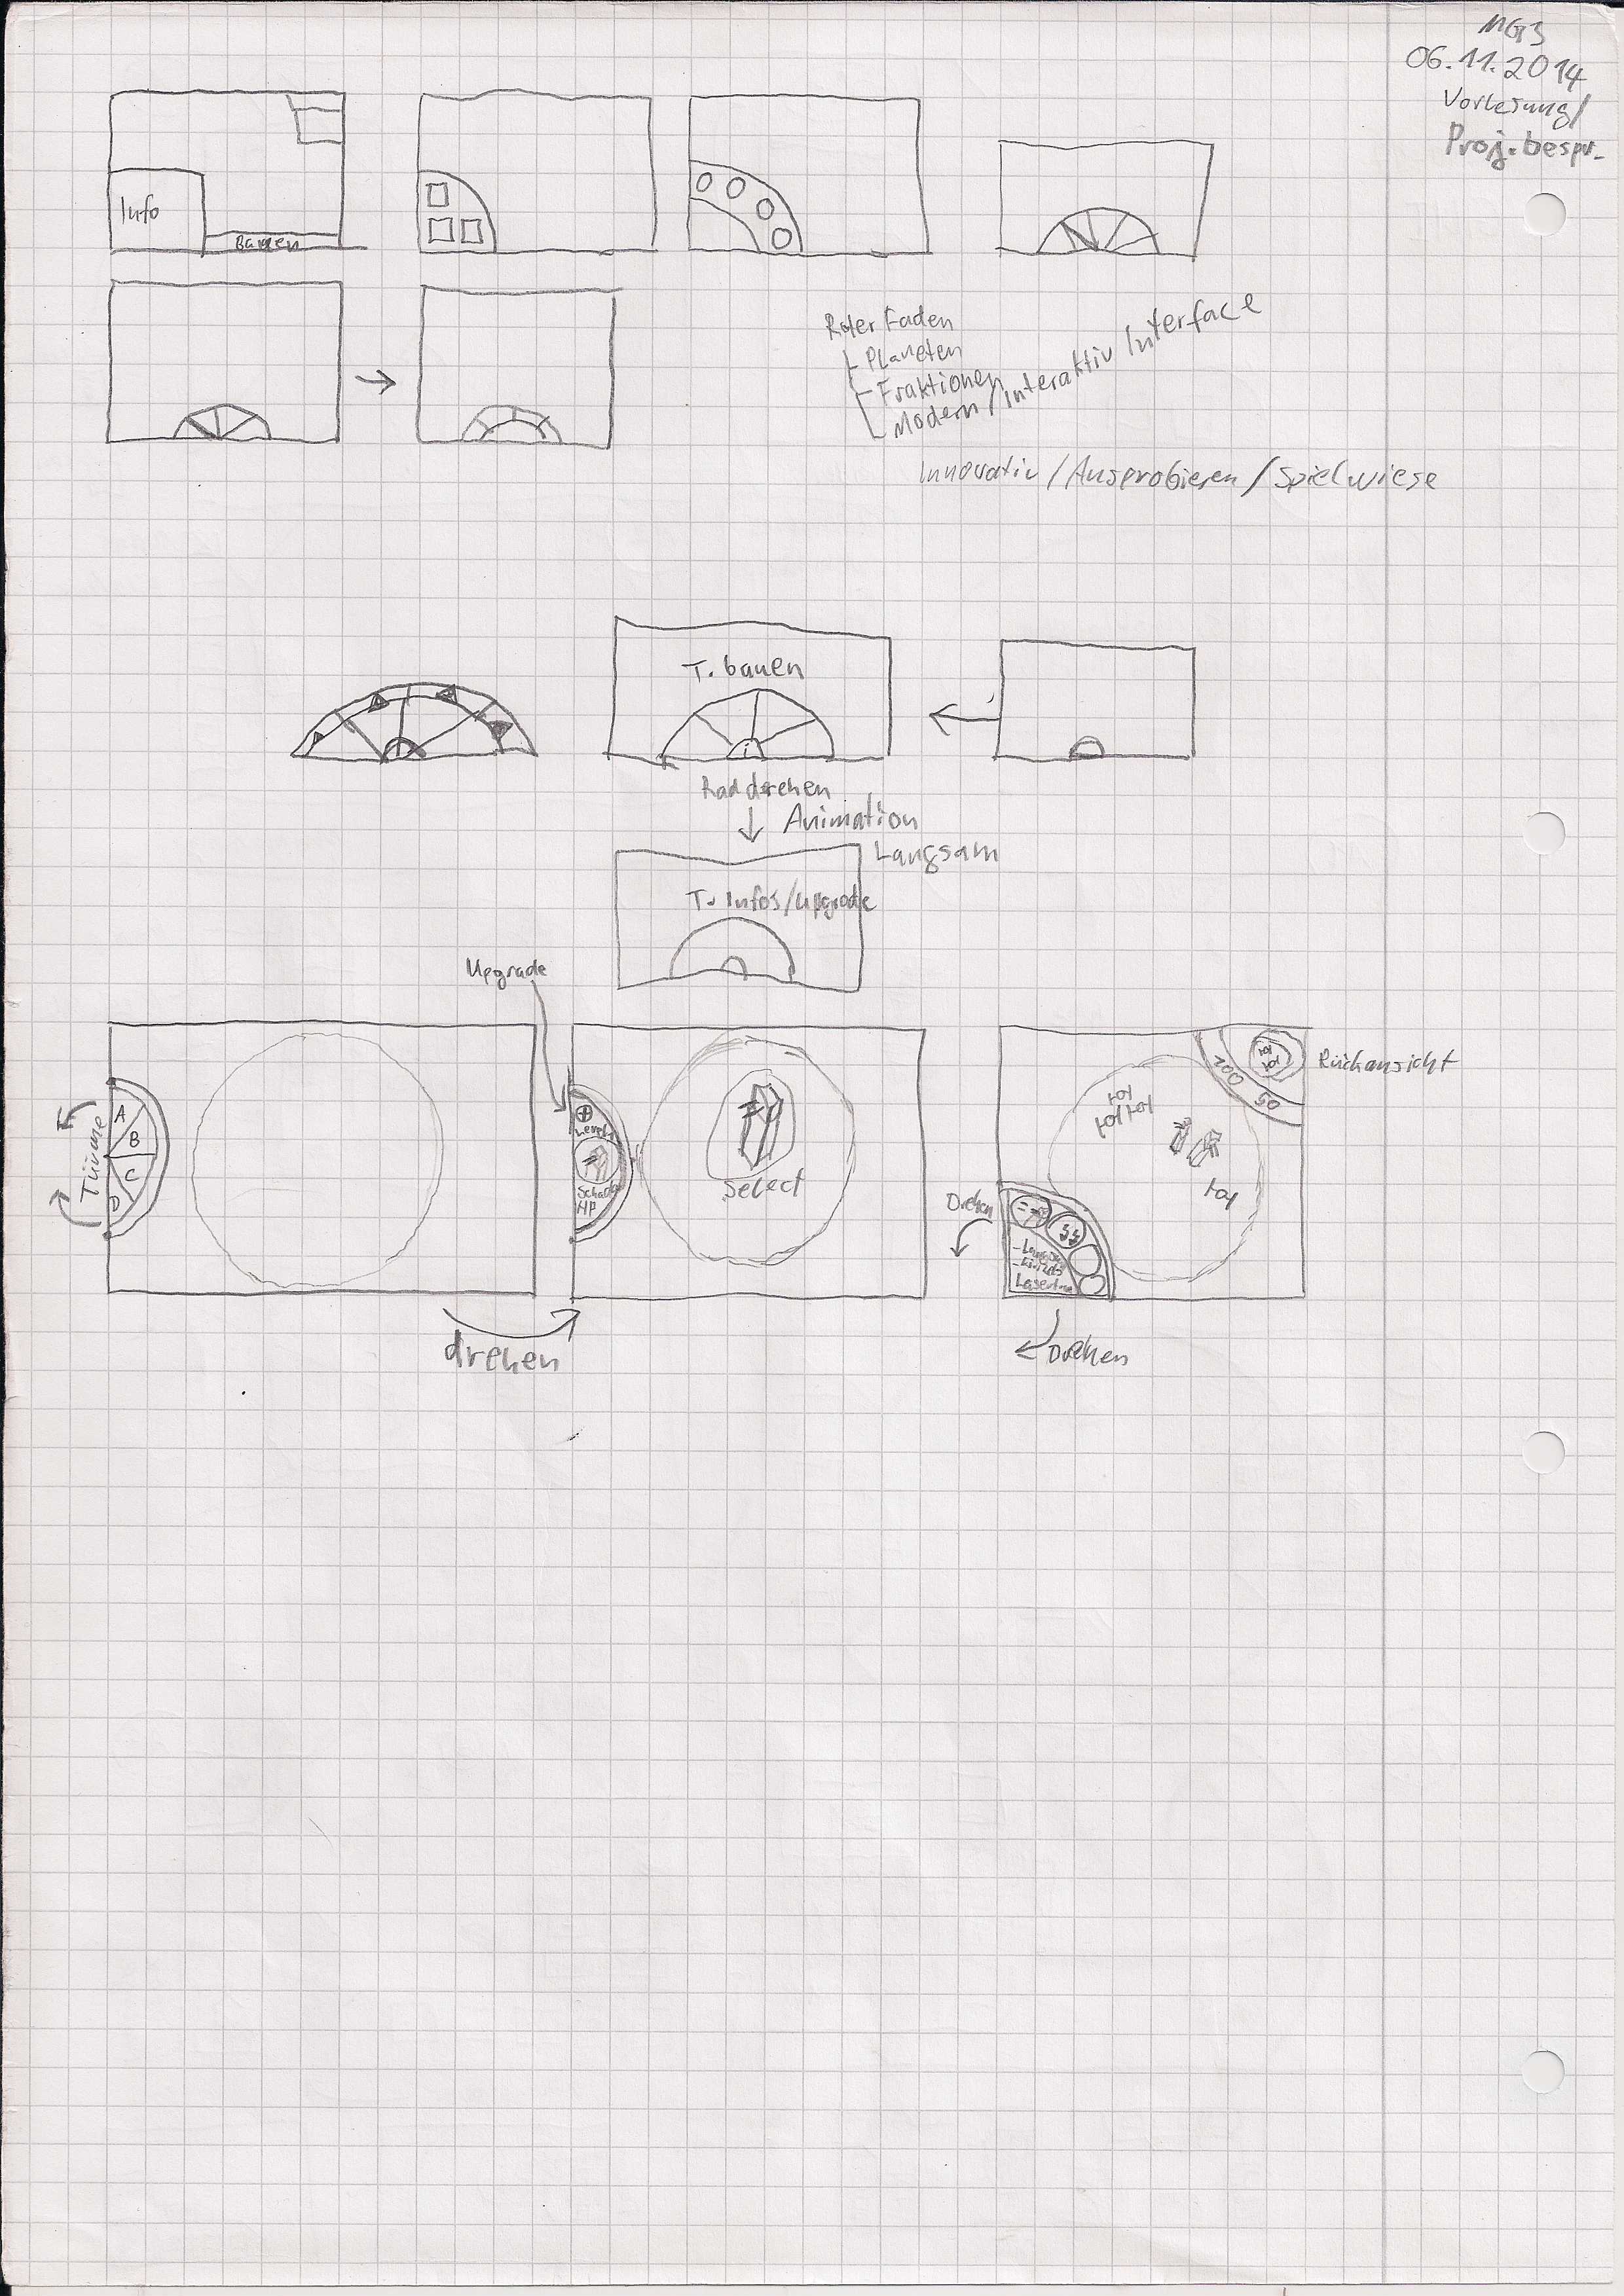 MGI3
06.11.2014
Vorlesung/
Proj.bespr.
Info
Bauen
Roter Faden
Planeten
Fraktionen
Modern/Interaktiv Interface
Innovativ/Ausprobieren/Spielwiese
T. bauen
i
Rad drehen
Animation
Langsam
T. Infos/Upgrade
Upgrade
Türme
A
B
C
D
Schaden
HP
Select
drehen
100
50
Rückansicht
Drehen
Drehen